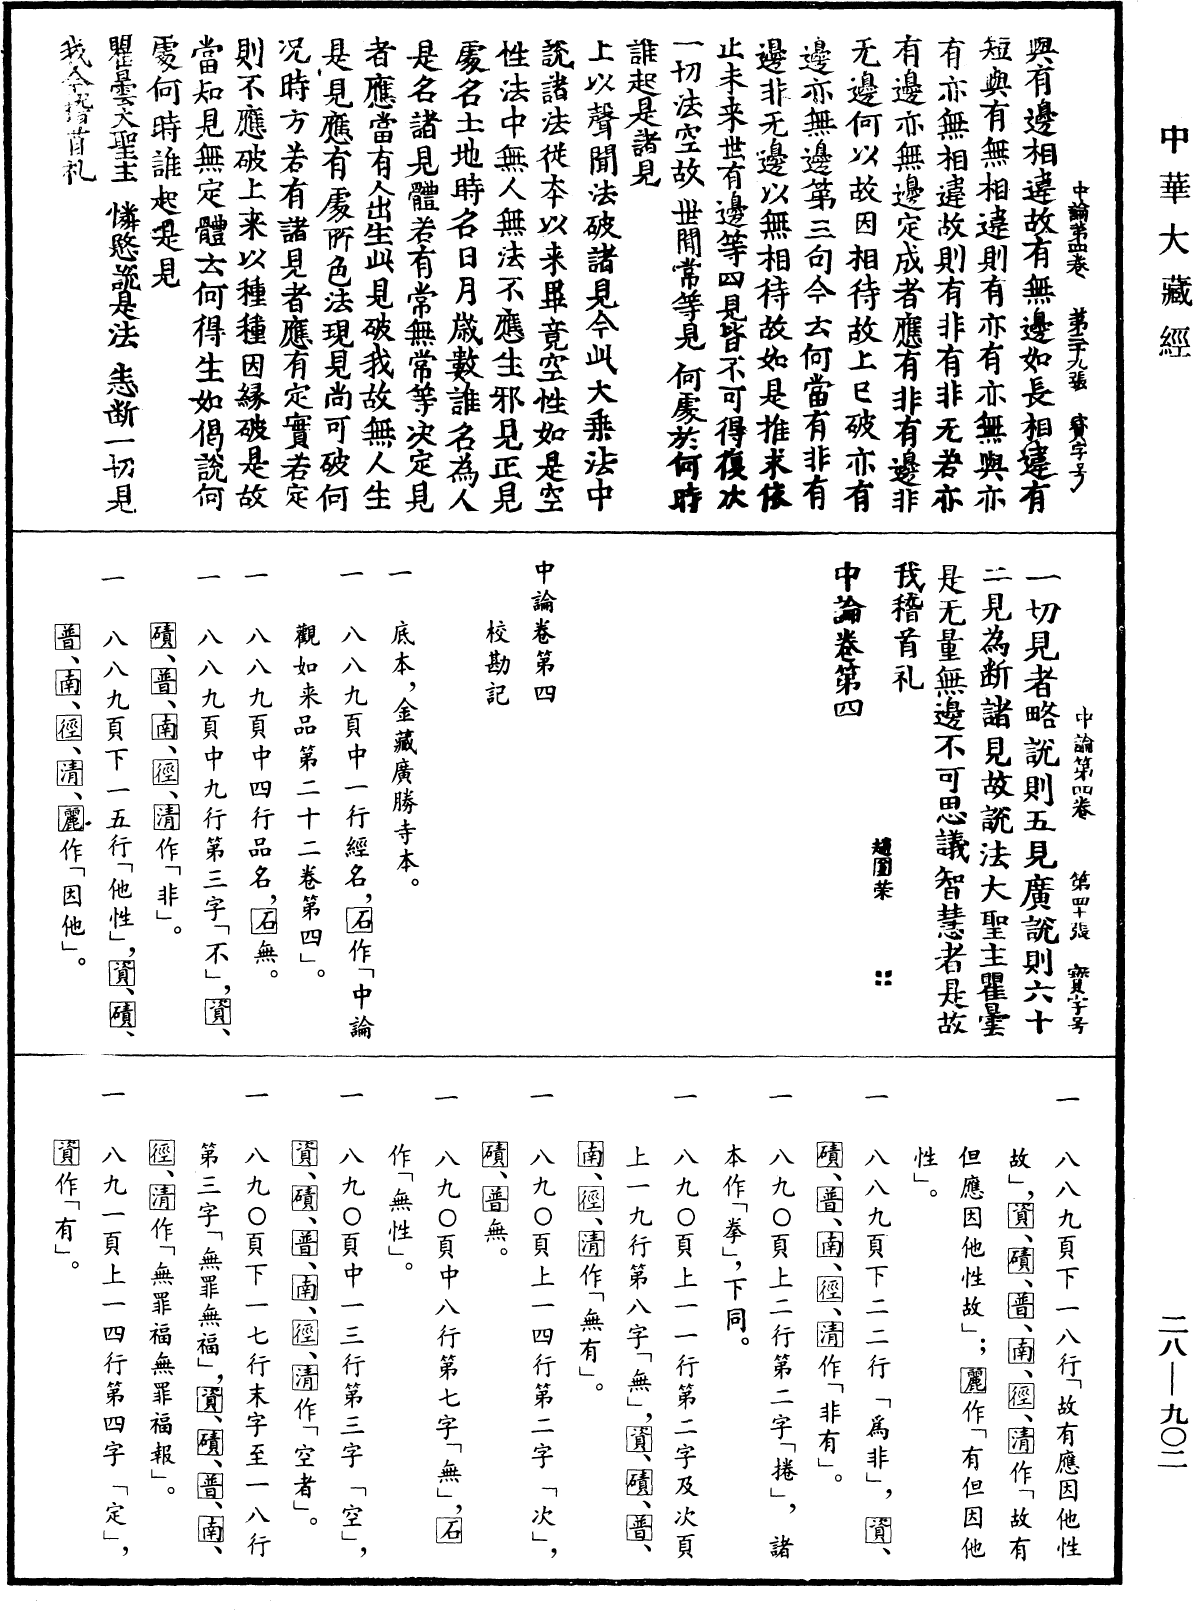 中華大藏經
中論第四卷　第三十九張　寶字号
與有邊相違故有無邊如長相違有
短與有無相違則有亦有亦無與亦
有亦無相違故則有非有非无若亦
有邊亦無邊定成者應有非有邊非
无邊何以故因相待故上已破亦有
邊亦無邊第三句今云何當有非有
邊非无邊以無相待故如是推求依
止未来世有邊等四見皆不可得復次
一切法空故　世間常等見　何處於何時
誰起是諸見
上以聲聞法破諸見今此大乗法中
說諸法從本以来畢竟空性如是空
性法中無人無法不應生邪見正見
處名土地時名日月歲數誰名為人
是名諸見體若有常無常等决定見
者應當有人出生此見破我故無人生
是見應有處所色法現見尚可破何
况時方若有諸見者應有定實若定
則不應破上来以種種因縁破是故
當知見無定體云何得生如偈說何
處何時誰起是見
瞿曇大聖主　憐愍說是法　悉断一切見
我今稽首礼
中論第四卷　第四十張　寳字号
一切見者略說則五見廣說則六十
二見為断諸見故說法大聖主瞿曇
是无量無邊不可思議智慧者是故
我稽首礼
趙圓荣
中論卷第四
中論卷第四
校勘記
一　底本，金藏廣勝寺本。
一　八八九頁中一行經名，石作「中論
觀如来品第二十二卷第四」。
一　八八九頁中四行品名，石無。
一　八八九頁中九行第三字「不」，資、
磧、普、南、徑、清作「非」。
一　八八九頁下一五行「他性」，資、磧、
普、南、徑、清、麗作「因他」。
一　八八九頁下一八行「故有應因他性
故」，資、磧、普、南、徑、清作「故有
但應因他性故」；麗作「有但因他
性」。
一　八八九頁下二二行「爲非」，資、
磧、普、南、徑、清作「非有」。
一　八九〇頁上二行第二字「捲」，諸
本作「拳」，下同。
一　八九〇頁上一一行第二字及次頁
上一九行第八字「無」，資、磧、普、
南、徑、清作「無有」。
一　八九〇頁上一四行第二字「次」，
磧、普無。
一　八九〇頁中八行第七字「無」，石
作「無性」。
一　八九〇頁中一三行第三字「空」，
資、磧、普、南、徑、清作「空者」。
一　八九〇頁下一七行末字至一八行
第三字「無罪無福」，資、磧、普、南、
徑、清作「無罪福無罪福報」。
一　八九一頁上一四行第四字「定」，
資作「有」。
二八—九〇二